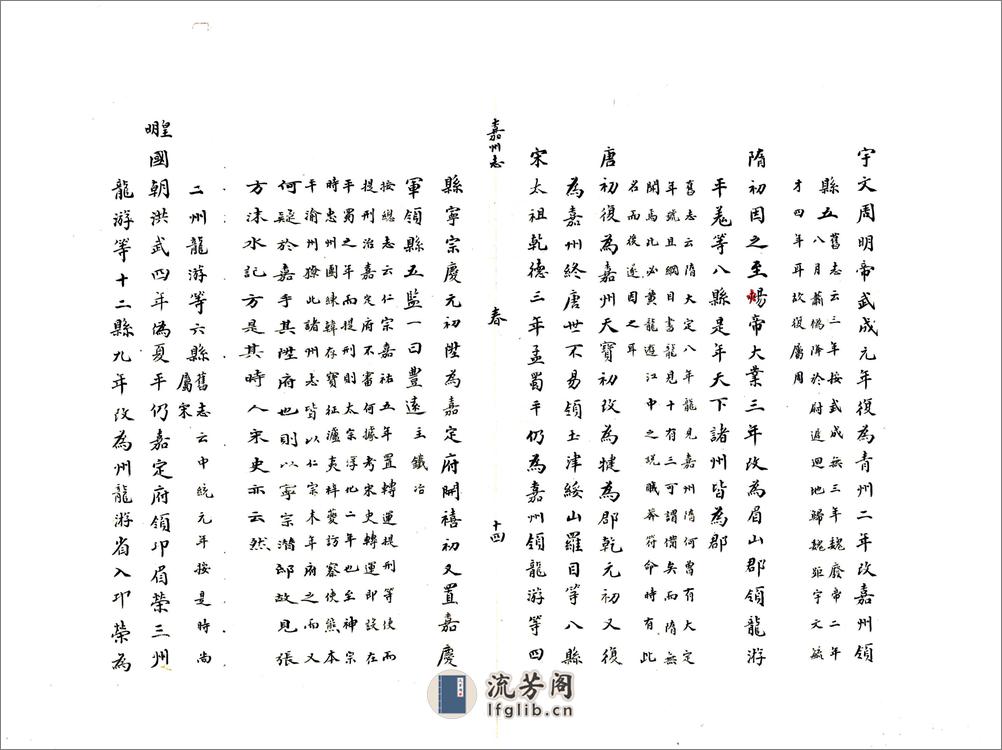 宇文周明帝武成元年復為青州二年改嘉州領
縣五
舊志云三年按武成無三年魏廢帝二年
八月蕭撝降於尉遲迥地歸魏距宇文毓
才四年耳故復屬周
隋初因之至煬帝大業三年改為眉山郡領龍游
平羌等八縣是年天下諸州皆為郡
舊志云隋大定八年龍見嘉州隋何曾有大定
年號且綱目書龍見十有三可謂備矣而隋無
聞焉此必黃龍遊江中之說 莽符命時有此
名而後遂因之耳
唐初復為嘉州天寶初改為犍為郡乾元初又復
為嘉州終唐世不易領玉津綏山羅目等八縣
宋太祖乾德三年孟蜀平仍為嘉州領龍游等四
嘉州志
春
十四
縣寧宗慶元初陞為嘉定府開禧初又置嘉慶
軍領縣五監一曰豐遠
主鐵冶
按總志云仁宗嘉祐五年置轉運提刑等使而
提刑治嘉定府不審何據考宋史轉運即設在
平蜀之年而提刑則太宗淳化二年也至神宗
時忠州團練韓存寶征瀘夷梓夔訪察使熊本
平渝州獠此諸州志皆以仁宗末年府之而又
何疑於嘉乎其陞府也則以寧宗潛邸故見張
方沫水記方是其時人宋史亦云然
二州龍游等六縣
舊志云中統元年按是時尚
屬宋
皇明
國朝洪武四年偽夏平仍嘉定府領卭眉榮三州
龍游等十二縣九年改為州龍游省入卭榮為
流芳阁
lfglib.cn